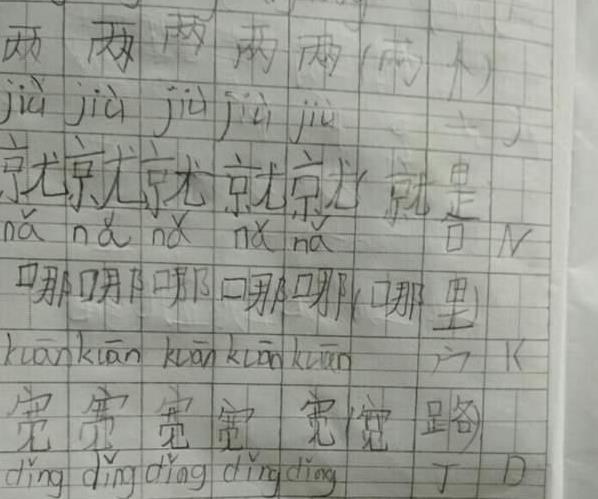 两 两 两 两 两 (两 个)
jiù jiù jiù jiù jiù 亠 J
就 就 就 就 就 (就 是
nǎ nǎ nǎ nǎ nǎ 口 N
哪 哪 哪 哪 哪 (哪 里)
kuān kuān kuān kuān kuān 宀 K
宽 宽 宽 宽 宽 (宽 路)
dǐng dǐng dǐng dǐng dǐng 丁 D